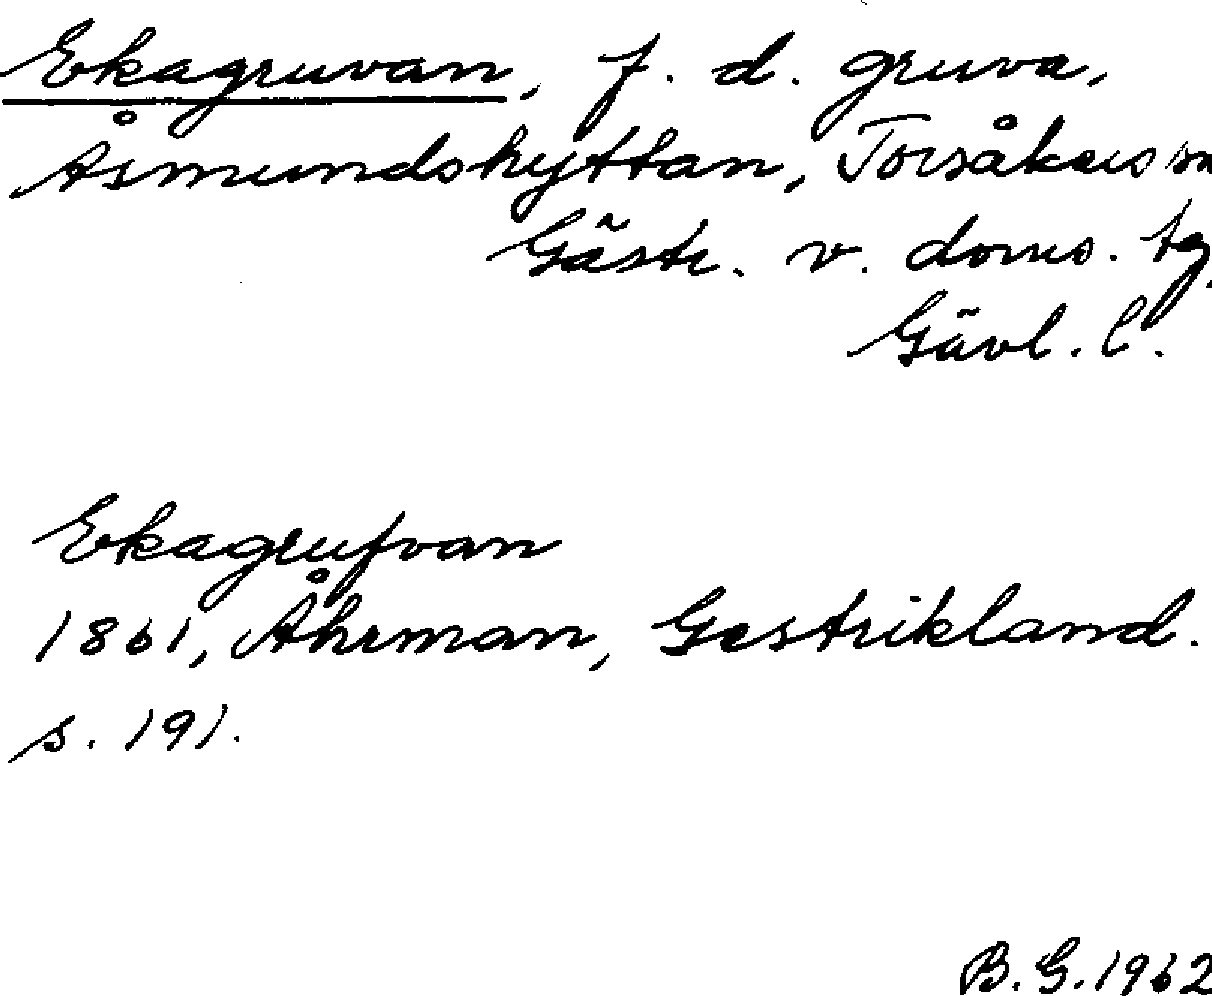 Ekagruvan, f. d. gruva,
Åsmundshyttan, Torsåkers sn
Gästr. v. doms. tg,
Gävl. l.
Ekagrufvan
1861, Åhrman, Gestrikland.
s. 191.
B. G. 1962